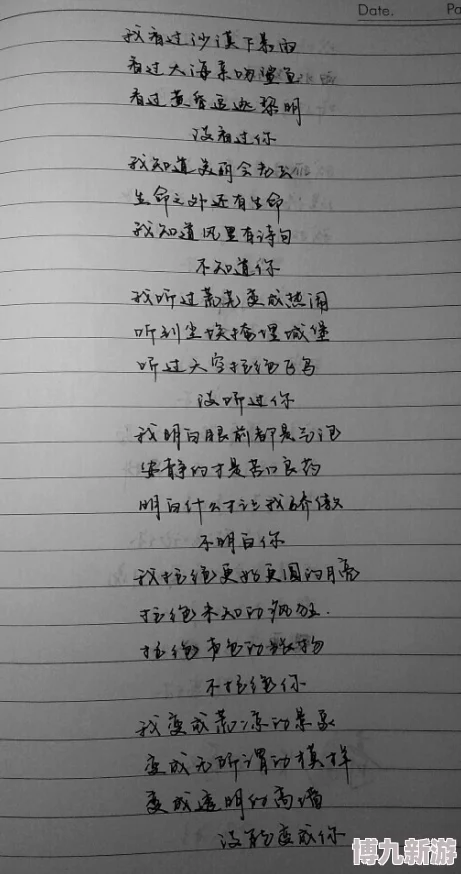 Date.
Pa
我看过沙漠下暴雨
看过大海亲吻鲨鱼
看过黄昏追逐黎明
没看过你
我知道美丽会老去
生命之外还有生命
我知道风里有诗句
不知道你
我听过荒芜变成热闹
听到尘埃掩埋城堡
听过天空拒绝飞鸟
没听过你
我明白眼前都是气泡
安静的才是苦口良药
明白什么才让我骄傲
不明白你
我拒绝更好更圆的月亮
拒绝未知的疯狂.
拒绝声色的张扬
不拒绝你
我变成荒凉的景象
变成无所谓的模样
变成透明的高墙
没能变成你
博九新游